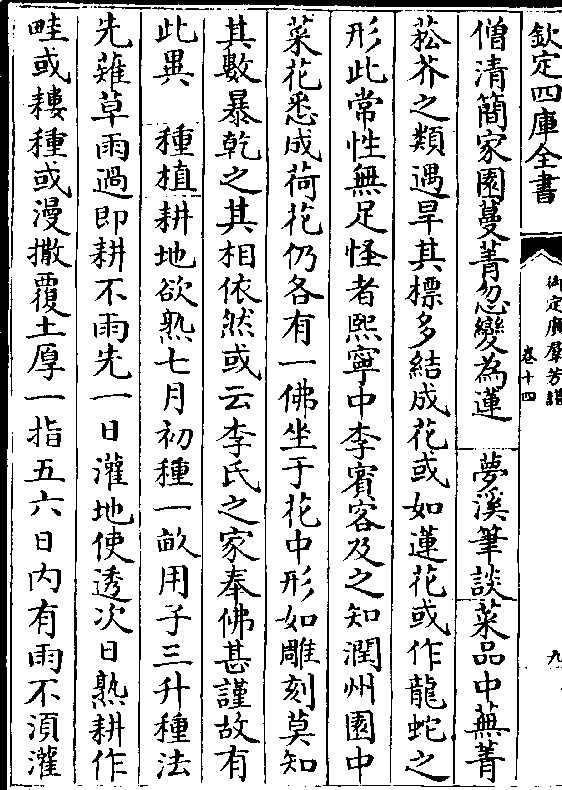 欽定四庫全書
御定廣羣芳譜
卷十四
九
僧清簡家園蔓菁忽變為蓮 夢溪筆談菜品中蕪菁
菘芥之類遇旱其標多結成花或如蓮花或作龍蛇之
形此常性無足怪者熙寧中李賓客及之知潤州園中
菜花悉成荷花仍各有一佛坐于花中形如雕刻莫知
其數暴乾之其相依然或云李氏之家奉佛甚謹故有
此異 種植耕地欲熟七月初種一畝用子三升種法
先薙草雨過即耕不雨先一日灌地使透次日熟耕作
畦或耬種或漫撒覆土厚一指五六日內有雨不須灌